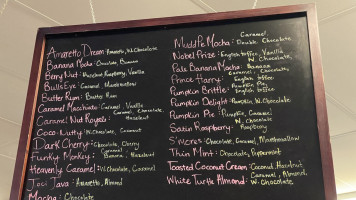 Amaretto Dream: Amaretto, W.Chocolate
Banana Mocha: Chocolate, Banana
Berry Nut: Hazelnut, Raspberry, Vanilla
Bulls Eye: Caramel, Marshmallow
Butter Rum: Butter Rum
Caramel Macchiato: Caramel, Vanilla
Caramel Nut Royale: Caramel, Chocolate, Hazelnut
Coco-Nutty: W. Chocolate, Coconut
Dark Cherry: Chocolate, Cherry
Funky Monkey: Caramel, Banana, Hazelnut
Heavenly Caramel: Caramel, W.Chocolate
Joei Java: Amaretto, Almond
Mocha: Chocolate
Muddle Mocha: Caramel, Double, Chocolate
Nobel Prize: English Toffee, Vanilla
Pale Banana Mocha: W. Chocolate, Banana
Prince Harry: Caramel, Chocolate, English Toffee
Pumpkin Brittle: Pumpkin Pie, English Toffee
Pumpkin Delight: Pumpkin, W.Chocolate
Pumpkin Pie: Pumpkin, Caramel
Satin Raspberry: W. Chocolate, Raspberry
S'mores: Chocolate, Caramel, Marshmallow
Thin Mint: Chocolate, Peppermint
Toasted Coconut Cream: Coconut, Hazelnut
White Turtle Almond: Caramel, Almond, W. Chocolate